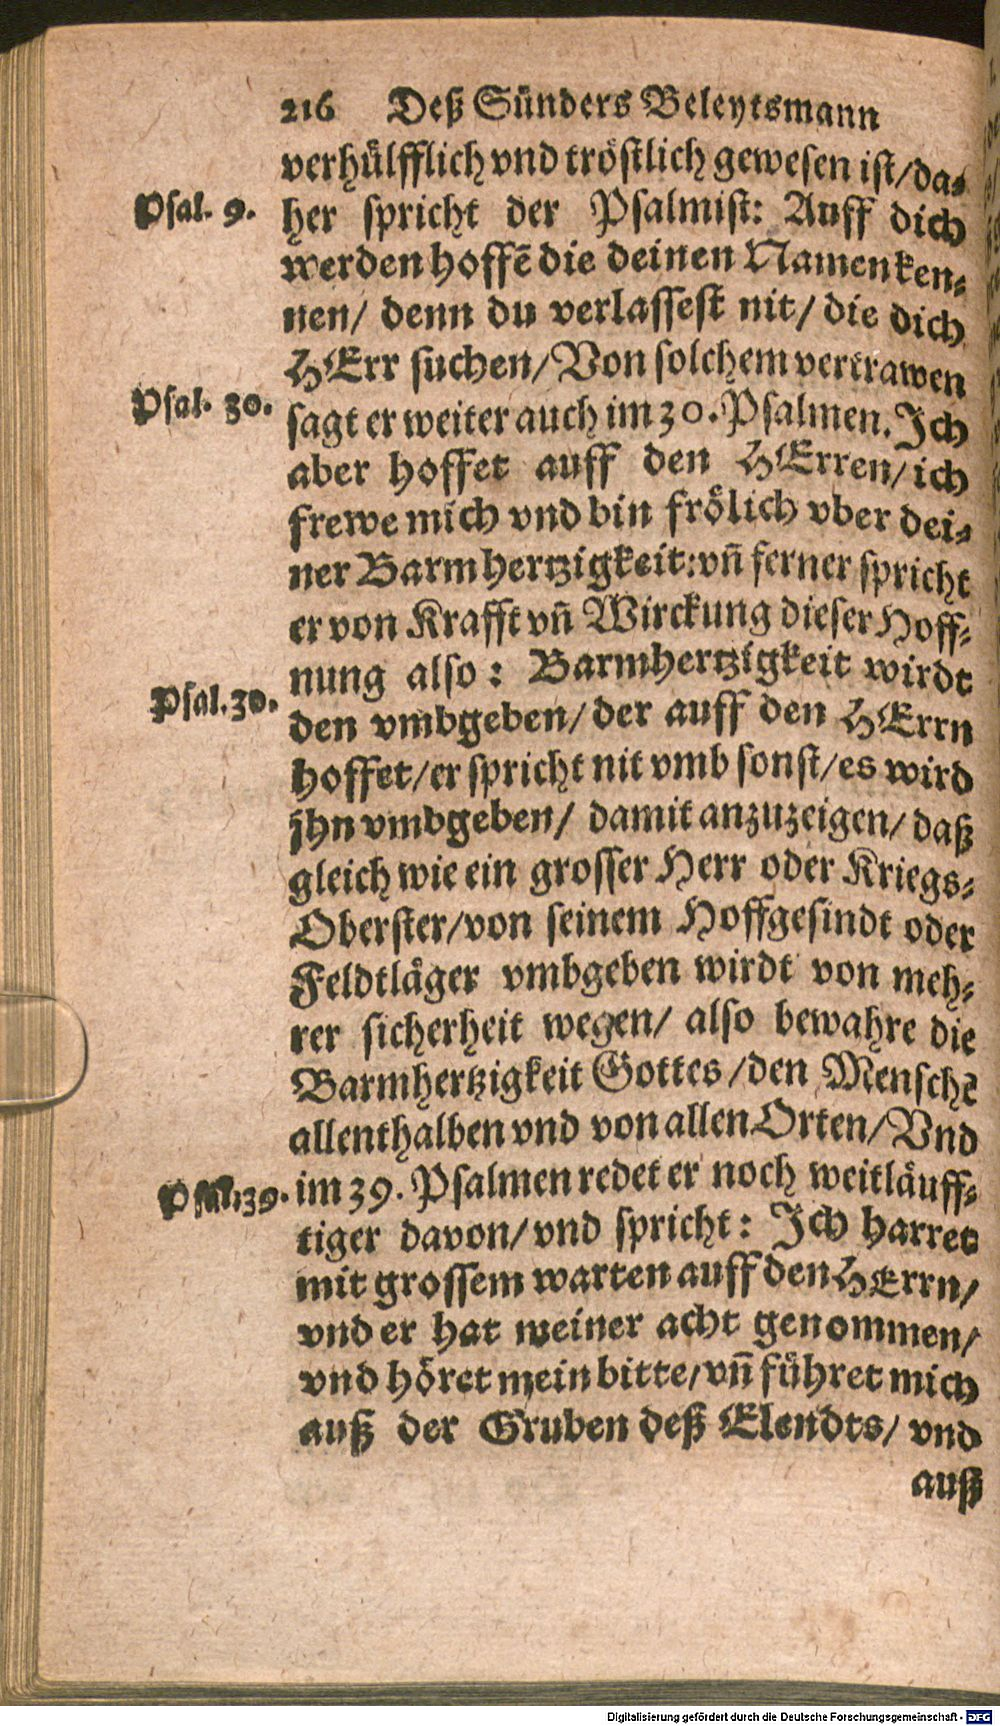 216 Deß Sünders Beleytsmann
verhülfflich vnd tröstlich gewesen ist/da-
Psal. 9. her spricht der Psalmist: Auff dich
werden hoffē die deinen Namen ken-
nen/ denn du verlassest nit/ die dich
HErr suchen/Von solchem vertrawen
Psal. 30. sagt er weiter auch im 30. Psalmen. Ich
aber hoffet auff den HErren/ich
frewe mich vnd bin frölich vber dei-
ner Barmhertzigkeit:vñ ferner spricht
er von Krafft vñ Wirckung dieser Hoff-
nung also: Barmhertzigkeit wirdt
Psal. 30. den vmbgeben/ der auff den HErrn
hoffet/er spricht nit vmb sonst/es wird
jhn vmbgeben/ damit anzuzeigen/ daß
gleich wie ein grosser Herr oder Kriegs-
Oberster/von seinem Hoffgesindt oder
Feldtläger vmbgeben wirdt von meh-
rer sicherheit wegen/ also bewahre die
Barmhertzigkeit Gottes /den Menschē
allenthalben vnd von allen Orten/Vnd
Psal. 39. im 39. Psalmen redet er noch weitläuff-
tiger davon/vnd spricht: Ich harret
mit grossem warten auff den HErrn/
vnd er hat meiner acht genommen/
vnd höret mein bitte/vñ führet mich
auß der Gruben deß Elendts/ vnd
auß
Digitalisierung gefördert durch die Deutsche Forschungsgemeinschaft - DFG